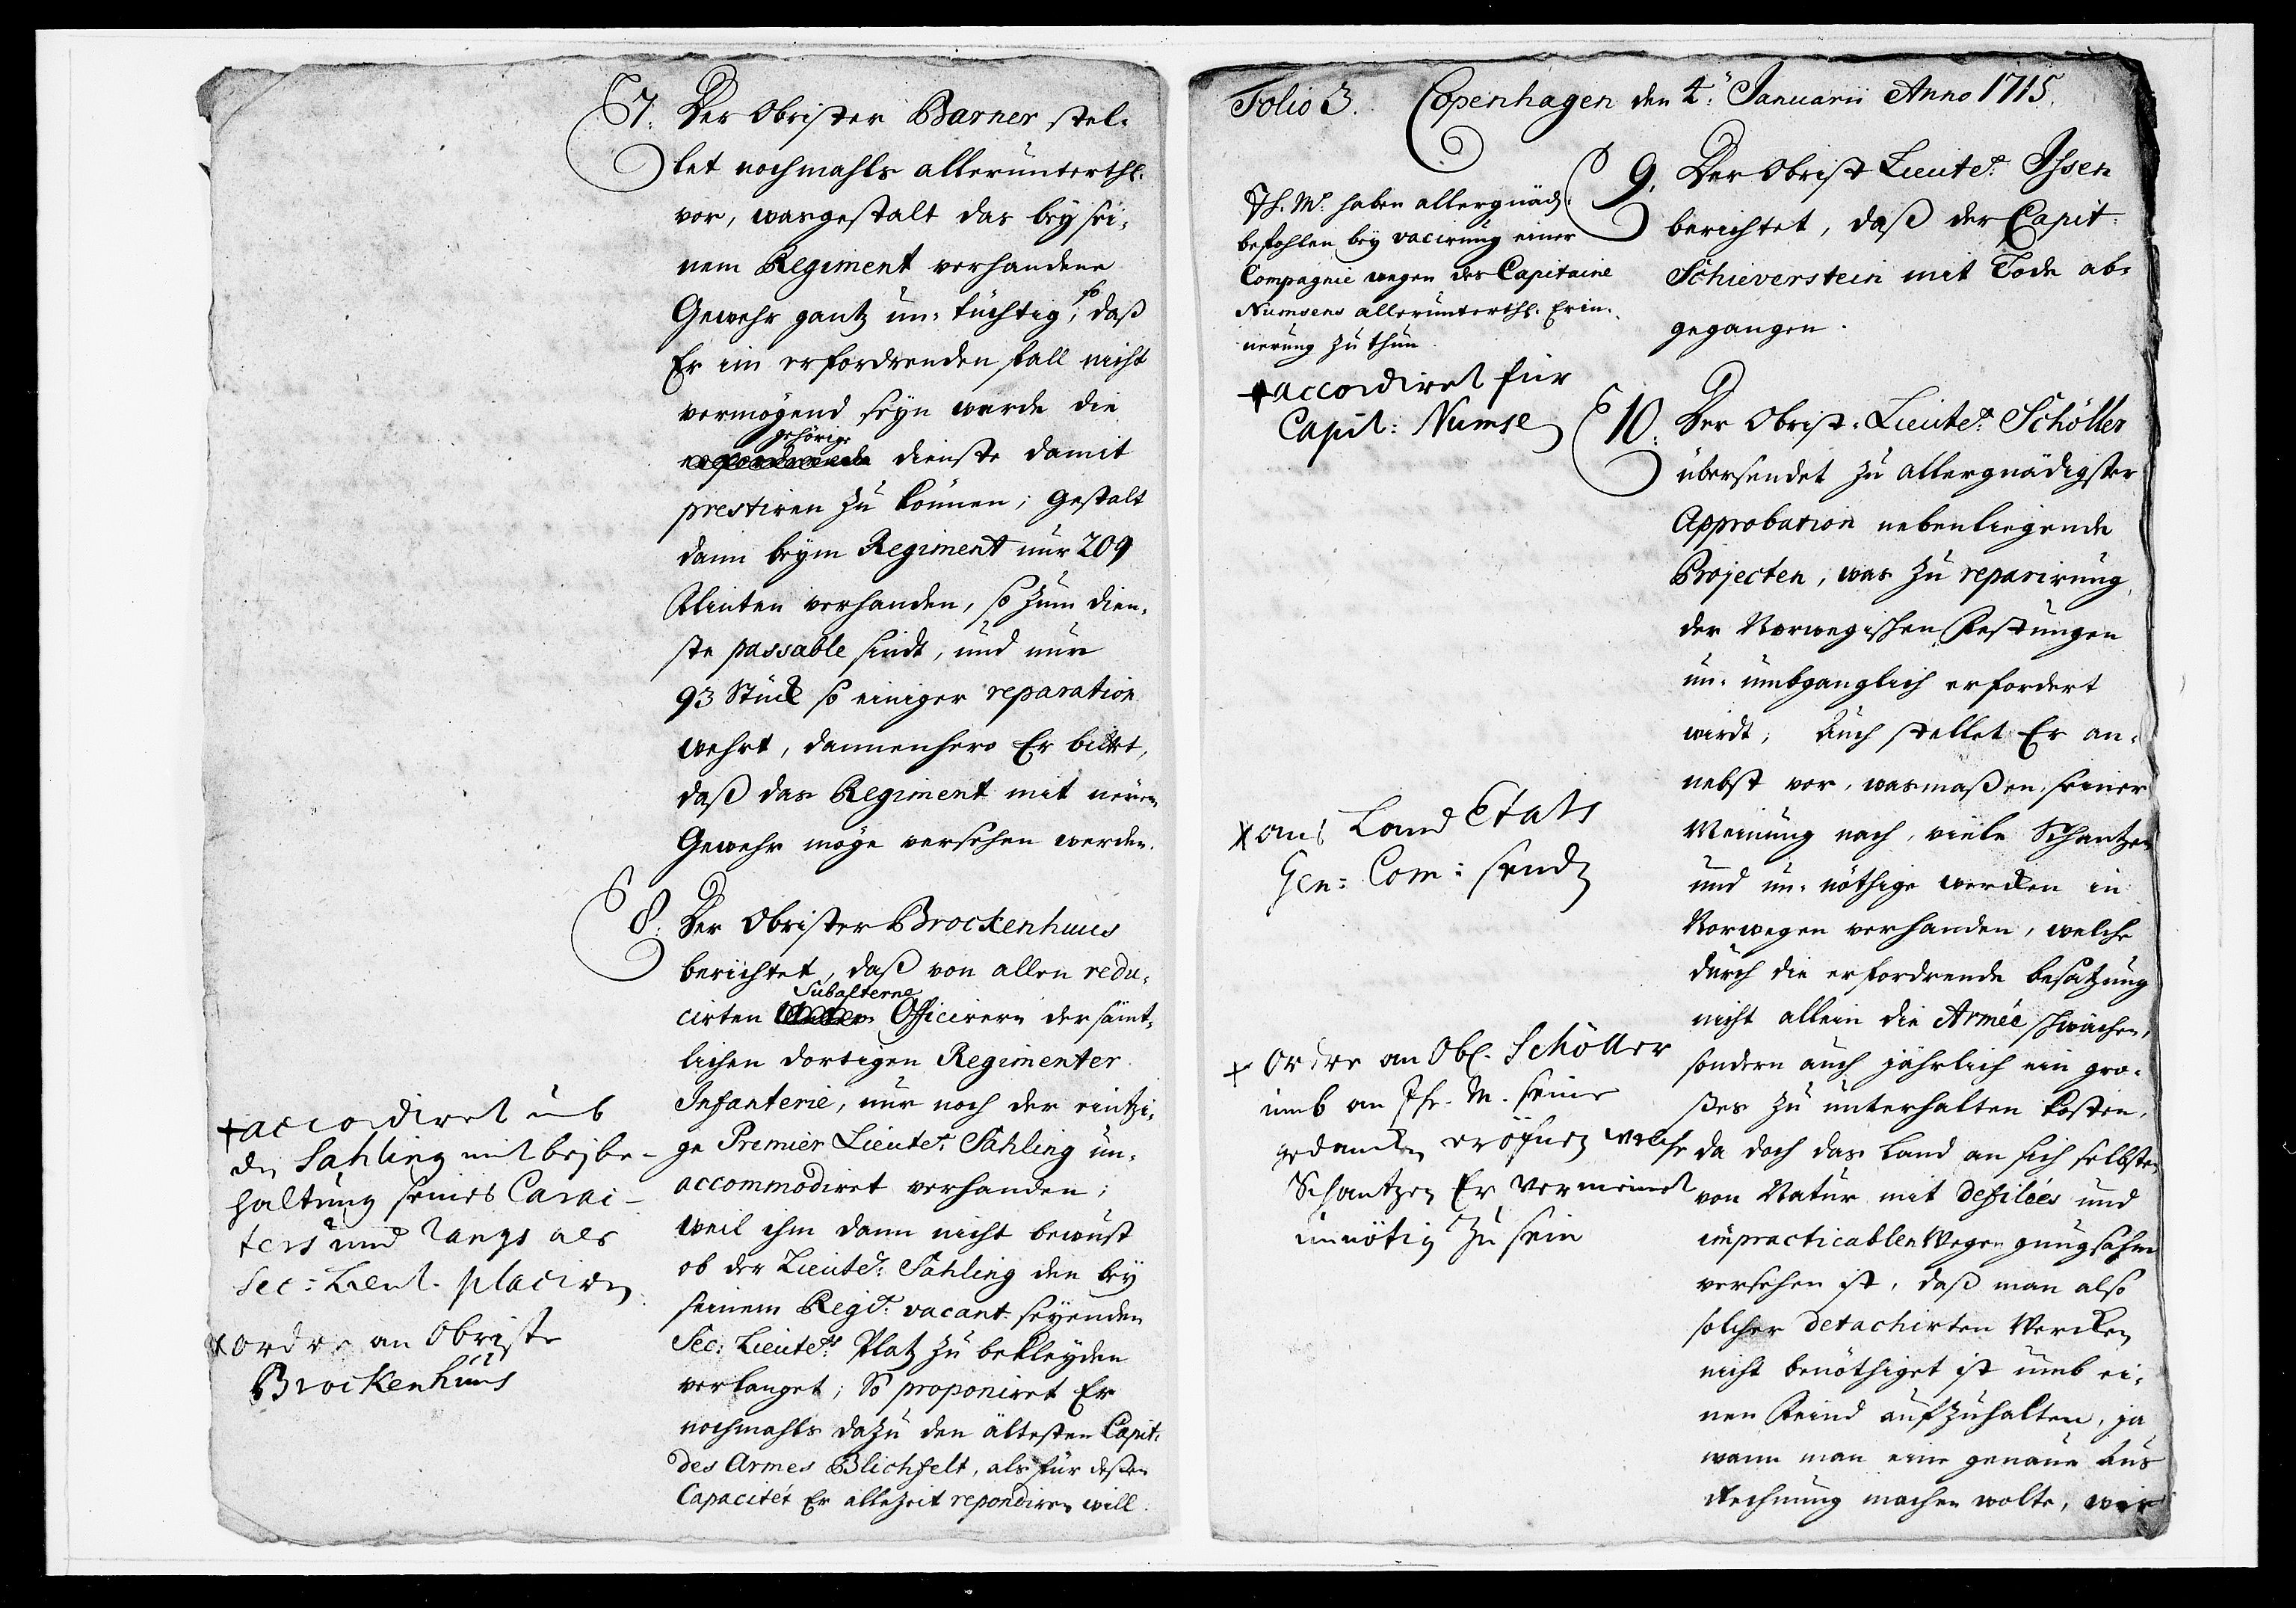 7. Der Obrister Barner stel-
let nochmahls allerunterthl.
vor, wasgestalt das bey sei-
nem Regiment verhandene
Gewehr gantz un-tüchtig, so daß
Er im erfordrenden fall nicht
vermögend seyn werde die
gehörige dienste damit
prestiren zu können; Gestalt
dann beym Regiment nur 209
Flinten verhanden, so zum dien-
ste passable sindt, und nur
93 Stück so einiger reparation
wehrt, dannenhero Er bittet,
daß das Regiment mit neuen
Gewehr möge versehen werden.
8. Der Obrister Brockenhuus
berichtet, daß von allen redu-
cirten Subalterne Officirern der sämt-
lichen dortigen Regimenter
Infanterie, nur noch der eintzi-
ge Premier Lieutet. Sahling un-
accommodiret verhanden;
weil ihm dann nicht bewust
ob der Lieutet: Sahling den bey
seinem Regit. vacant seyenden
Sec: Lieutets Platz zu bekleyden
verlanget; So proponiret Er
nochmahls dazu den ältesten Capit:
des Armes Blichfelt, als für deßen
Capacitét Er allezeit repondiren will.
+ accordiret umb
den Sahling mit beybe-
haltung seines Carac-
ters und Rangs als
Sec: Lieut. placiren
x ordre an Obriste
Brockenhuus
Folio 3. Copenhagen den 4. Januarii Anno 1715.
Ih. M. haben allergnäd:
befohlen bey vacirung einer
Compagnie wegen des Capitaine
Numsens allerunterthl. Erin-
nerung zu thun.
+ accordiret für
Capit: Numse
x ans Land Etats
Gen: Com: send
x Ordre an Obl. Schöller
umb an Ihr. M. seine
gedancken eröfnen welche
Schantzen Er vermeinet
unnötig zu sein
9. Der Obrist Lieutet. Issen
berichtet, daß der Capit:
Schieverstein mit Tode ab-
gegangen.
10. Der Obrist-Lieutet: Schöller
übersendet zu allergnädigster
Approbation nebenliegende
Projecten, was zu reparirung
der Norwegischen Festungen
un-umbganglich erfordert
wirdt; Auch stellet Er an-
nebst vor, wasmaßen seiner
Meinung nach, viele Schantzen
und un-nöthige wercken in
Norwegen verhanden, welche
durch die erfordrende besatzung
nicht allein die Armée schwächen,
sondern auch jährlich ein gro-
ßes zu unterhalten kosten,
da doch das Land an sich selbsten
von Natur mit defilées und
impracticablen Wegen gnugsahm
versehen ist, daß man also
solcher detachirten Wercken
nicht benöthiget ist umb ei-
nen Feind aufzuhalten, ja
wann man eine genaue Aus
Rechnung machen wolte, wie